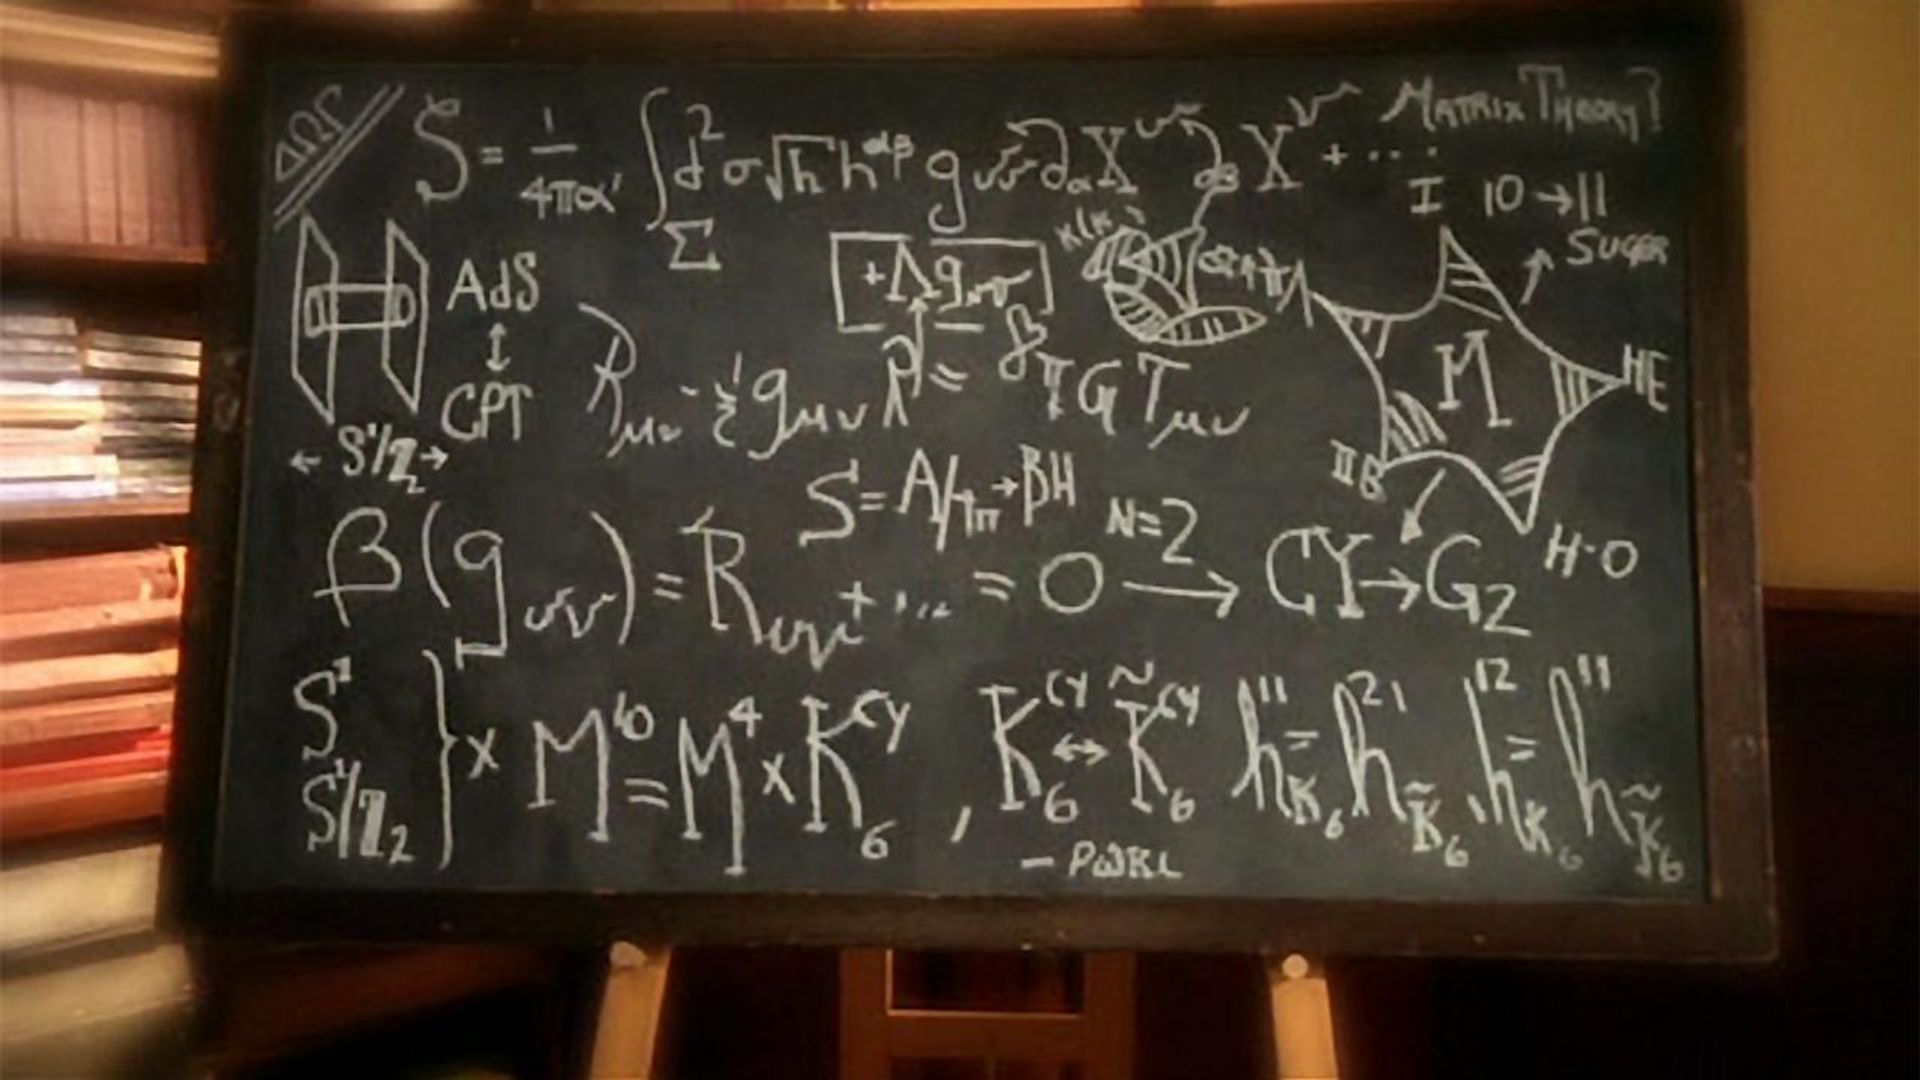 S = 1/4πα' ∫_Σ d²σ √h h^αβ g_μν ∂_α X^μ ∂_β X^ν + ...
MATRIX THEORY?
I 10 → 11
SUGRA
AdS
↕
CPT
+Λg_μν
R_μν - 1/2 g_μν R = 8πG T_μν
M
HE
IIB
H-O
← S¹/Z₂ →
S = A/4π → βH
β(g_μν) = R_μν + ... = 0 N=2 → CY → G₂
S¹
S¹/Z₂ } × M¹⁰ = M⁴ × K₆^CY , K₆^CY ↔ K̃₆^CY h¹¹_K₆ = h²¹_K̃₆ , h¹²_K₆ = h¹¹_K̃₆